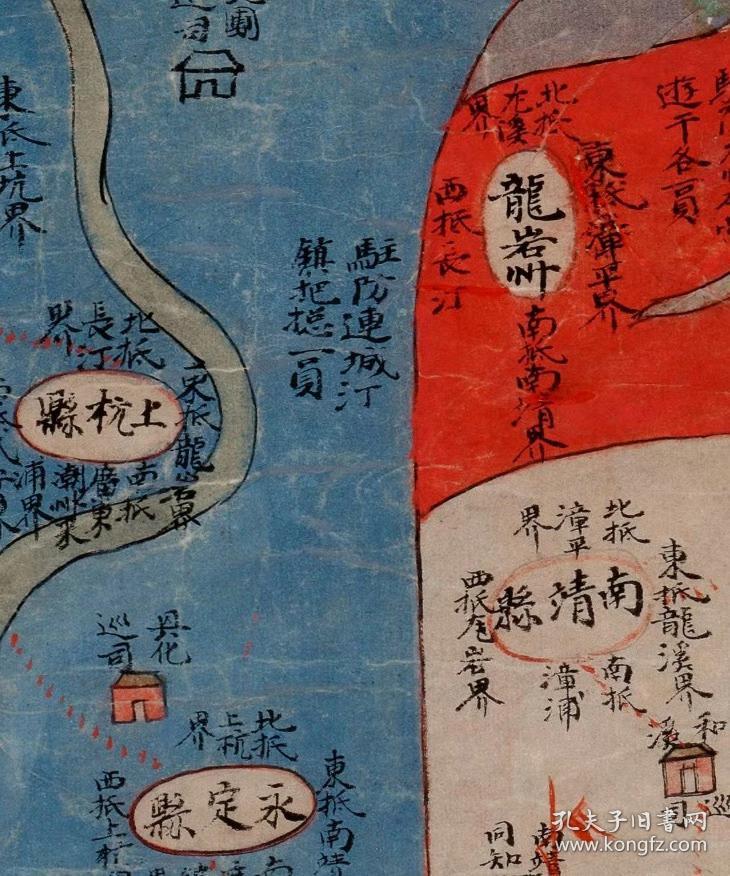 巡司
東抵上坑界
北抵
長汀
界
上杭縣
東抵龍岩界
南抵
廣東
潮州
浦界
駐防連城汀
鎮把摠一員
北抵
界
龍岩州
東抵漳平界
西抵長汀
南抵南靖界
遊千各一員
北抵
漳平
界
南靖縣
東抵龍溪界
南抵
漳浦
西抵龍岩界
和
溪
巡
司
興化
巡司
北抵
上杭
界
永定縣
東抵南靖
西抵上杭
南靖
同知
孔夫子旧書网
www.kongfz.com